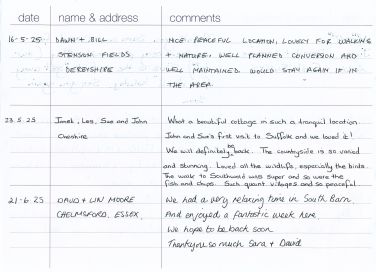 date name & address comments
16-5-25 DAWN + BILL NICE PEACEFUL LOCATION, LOVELY FOR WALKING
STENSON FIELDS + NATURE, WELL PLANNED CONVERSION AND
DERBYSHIRE WELL MAINTAINED WOULD STAY AGAIN IF IN
THE AREA.
23.5.25 Janet, Les, Sue and John What a beautiful cottage in such a tranquil location.
Cheshire John and Sue's first visit to Suffolk and we loved it!
We will definitely be back. The countryside is so varied
and stunning. Loved all the wildlife, especially the birds.
The walk to Southwold was super and so were the
fish and chips. Such quaint villages and so peaceful.
21-6-25 DAVID + LIN MOORE We had a very relaxing time in South Barn.
CHELMSFORD, ESSEX. And enjoyed a fantastic week here.
We hope to be back soon
Thankyou so much Sara + David